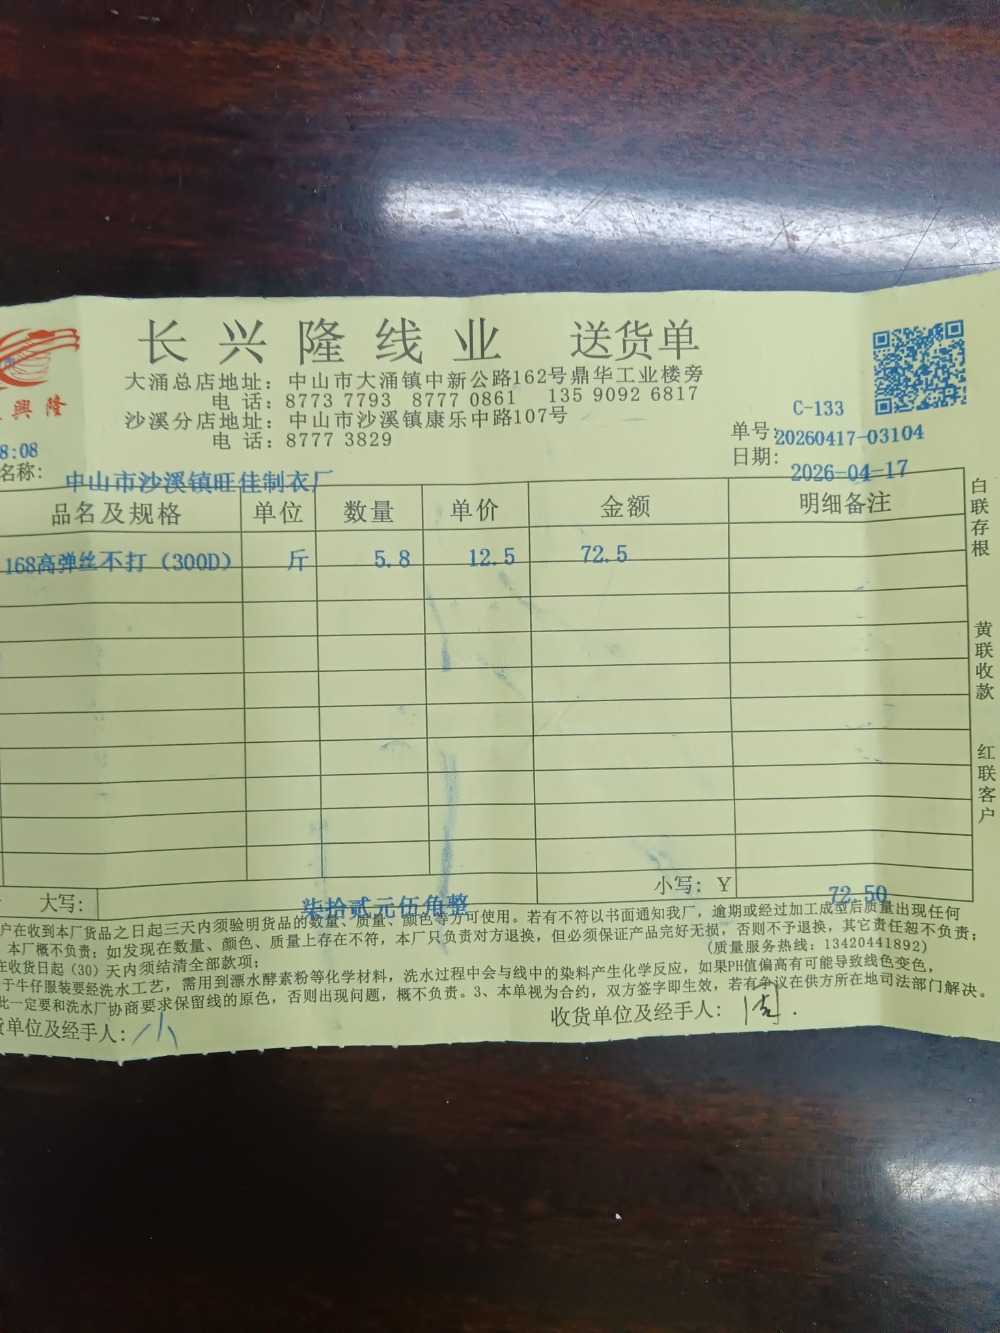 長興隆
长兴隆线业 送货单
大涌总店地址：中山市大涌镇中新公路162号鼎华工业楼旁
电 话：8773 7793 8777 0861 135 9092 6817
沙溪分店地址：中山市沙溪镇康乐中路107号
电 话：8777 3829
C-133
8:08
单号:20260417-03104
名称: 中山市沙溪镇旺佳制衣厂
日期: 2026-04-17
品名及规格 单位 数量 单价 金额 明细备注
168高弹丝不打（300D） 斤 5.8 12.5 72.5
白联存根
黄联收款
红联客户
大写: 柒拾贰元伍角整 小写: Y 72.50
户在收到本厂货品之日起三天内须验明货品的数量、质量、颜色等方可使用。若有不符以书面通知我厂，逾期或经过加工成型后质量出现任何
本厂概不负责；如发现在数量、颜色、质量上存在不符，本厂只负责对方退换，但必须保证产品完好无损，否则不予退换，其它责任恕不负责；
在收货日起（30）天内须结清全部款项； （质量服务热线：13420441892）
于牛仔服装要经洗水工艺，需用到漂水酵素粉等化学材料，洗水过程中会与线中的染料产生化学反应，如果PH值偏高有可能导致线色变色，
此一定要和洗水厂协商要求保留线的原色，否则出现问题，概不负责。3、本单视为合约，双方签字即生效，若有争议在供方所在地司法部门解决。
货单位及经手人: 小 收货单位及经手人: